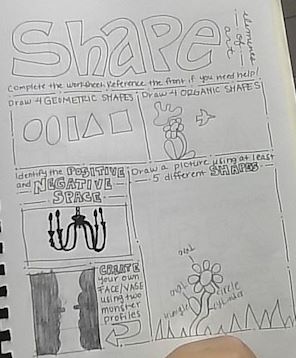 Shape
elements
of
art
Complete the worksheet. Reference the front if you need help!
Draw 4 GEOMETRIC SHAPES
Draw 4 ORGANIC SHAPES
Identify the POSITIVE
and NEGATIVE
SPACE
Draw a picture using at least
5 different SHAPES
CREATE
your own
FACE/VASE
using two
monster
profiles
oval
oval
circle
triangle
cylinder